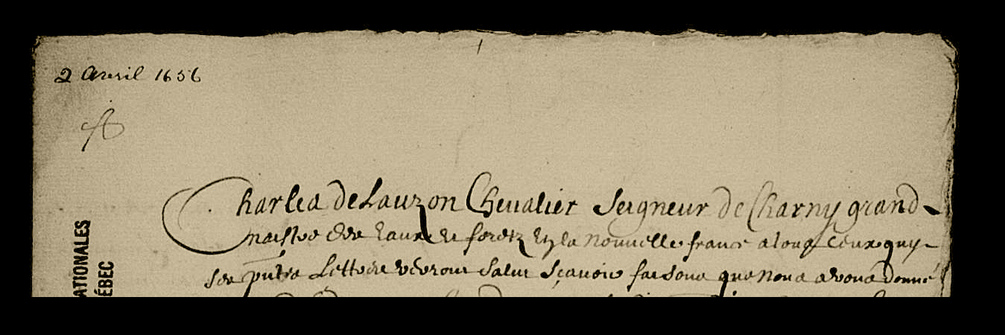 2 Avril 1656
Charles de Lauzon Chevalier Seigneur de Charny grand
maistre des eaux et foretz en la nouvelle france a tous ceux quy
ces pntes Lettres verront Salut Scavoir faisons que nous avons donné
ATIONALES
ÉBEC